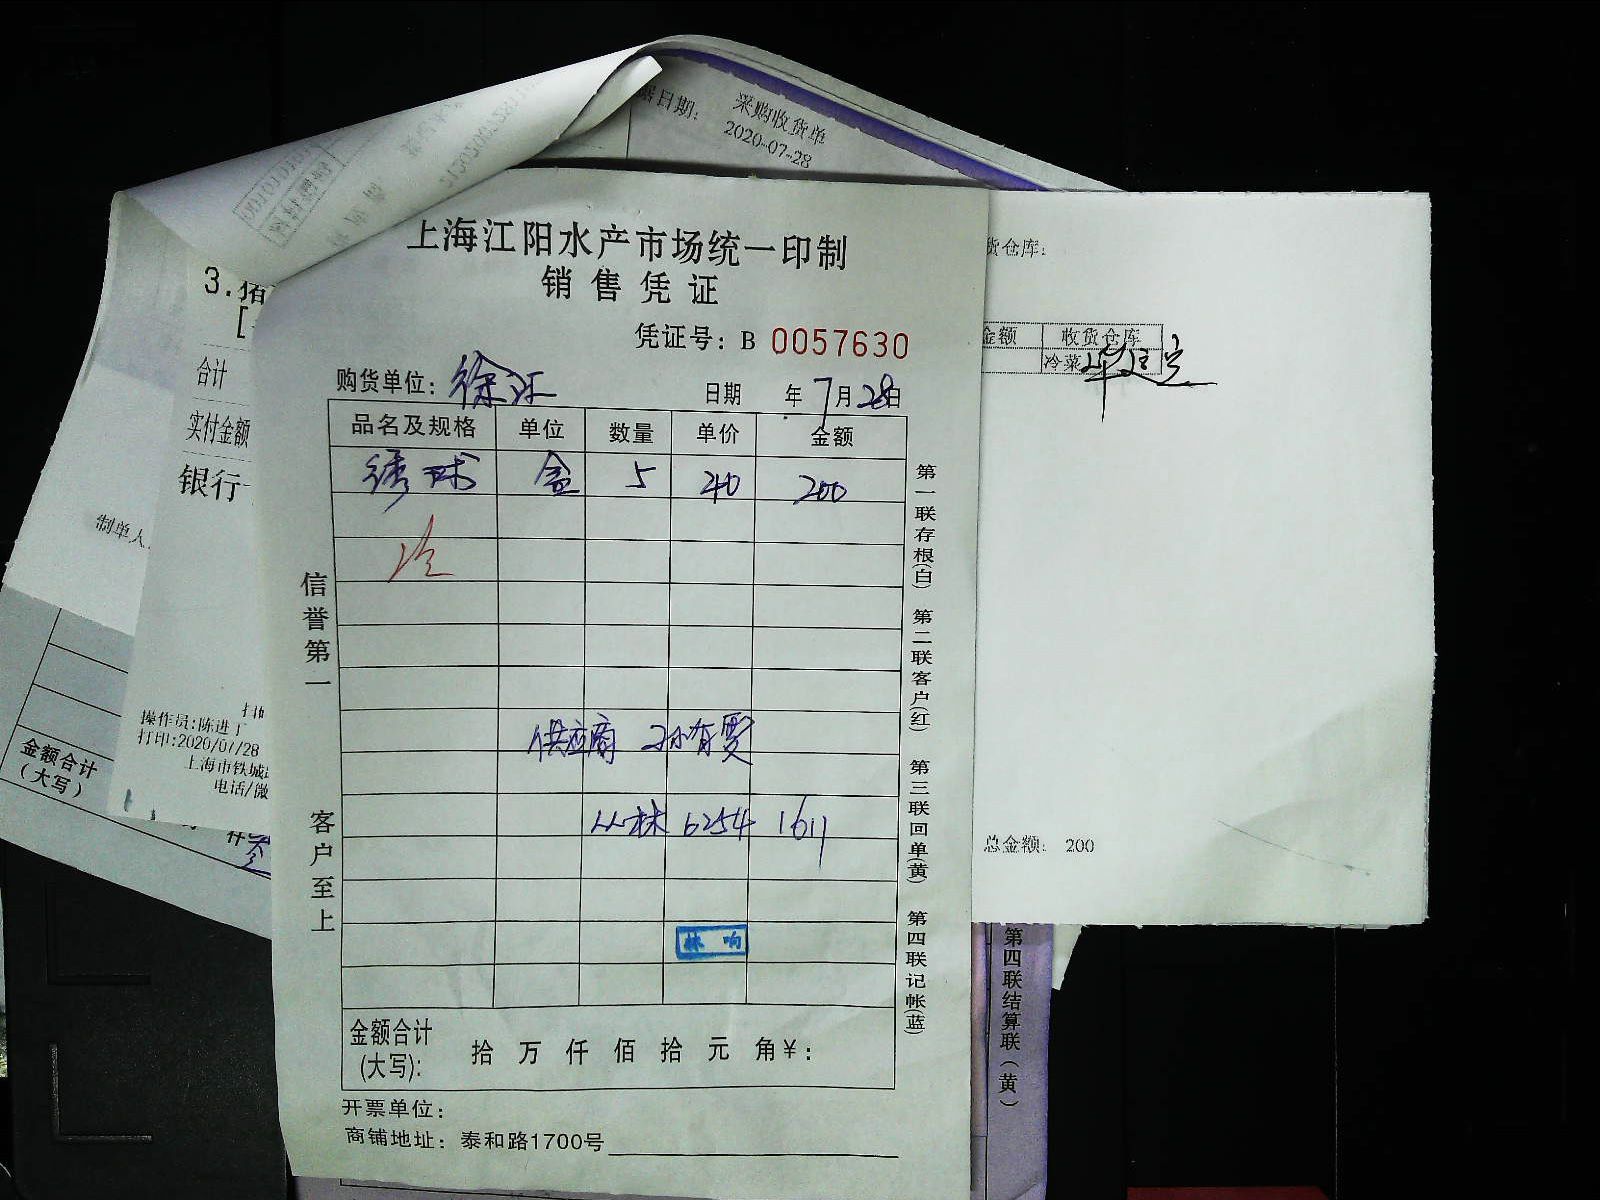 采购收货单
据日期:
2020-07-28
上海江阳水产市场统一印制
销售凭证
凭证号: B 0057630
购货单位: 徐汇 日期 年 7月28日
品名及规格 单位 数量 单价 金额
绣球 盒 5 40 200
冷
供应商 孙有雯
6254 1611
林 响
金额合计(大写): 拾 万 仟 佰 拾 元 角 ¥:
开票单位:
商铺地址: 泰和路1700号
信誉第一
客户至上
第一联存根(白) 第二联客户(红) 第三联回单(黄) 第四联记帐(蓝)
货仓库:
金额 收货仓库
冷菜
总金额: 200
第四联结算联(黄)
3.猪
合计
实付金额
银行
制单人
操作员:陈进丁
打印:2020/07/28
上海市铁城
电话/微
金额合计
(大写)